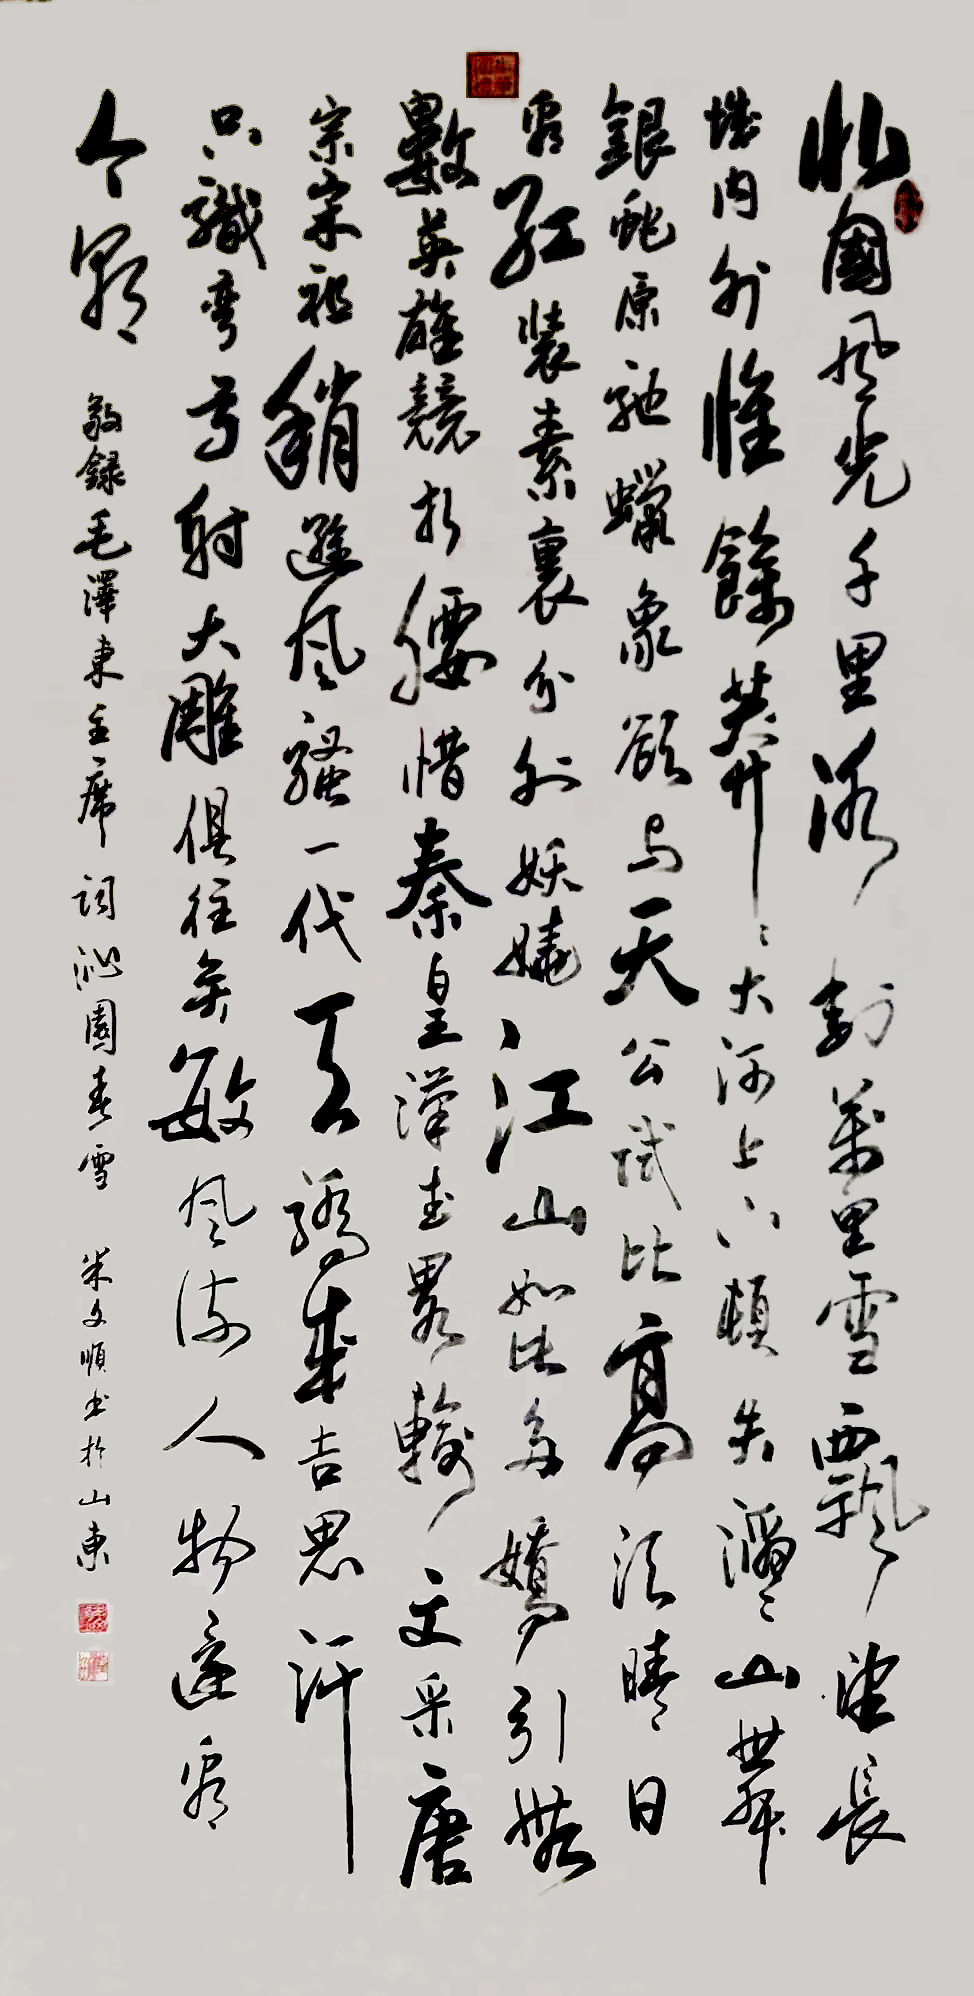 北國風光千里冰封萬里雪飄望長
城內外惟餘莽莽大河上下頓失滔滔山舞
銀蛇原馳蠟象欲与天公試比高須晴日
看紅裝素裹分外妖嬈江山如此多嬌引無
數英雄競折腰惜秦皇漢武略輸文采唐
宗宋祖稍遜風騷一代天驕成吉思汗
只識彎弓射大雕俱往矣數風流人物還看
今朝 敬錄毛澤東主席詞沁園春雪 朱文順书於山東